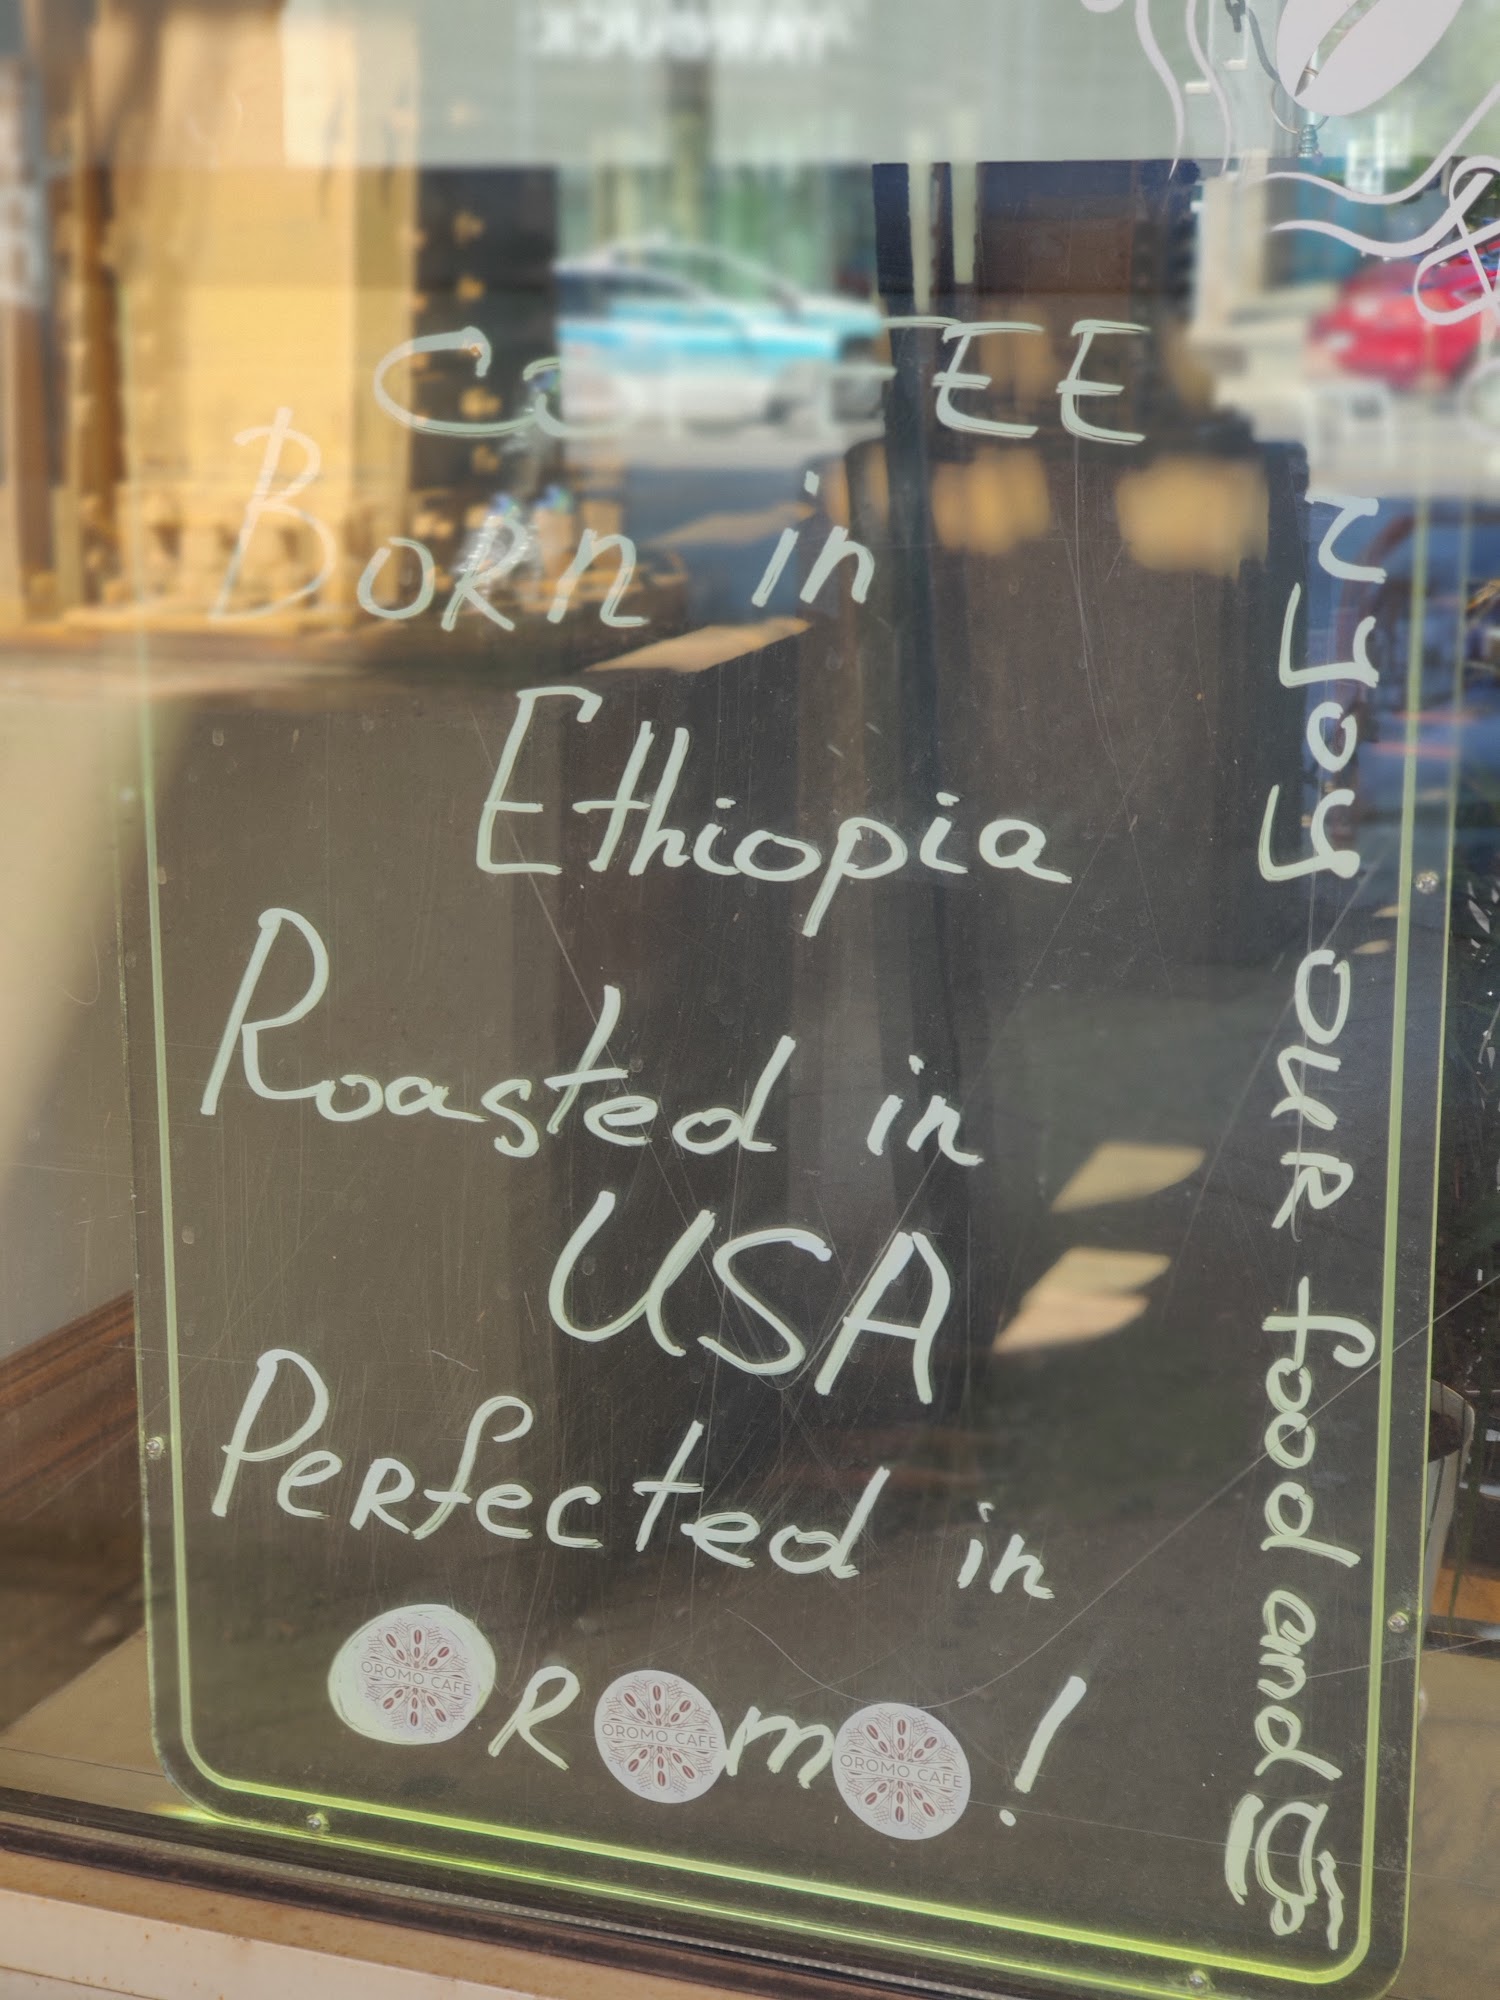 COFFEE
BORn in
Ethiopia
Roasted in
USA
PeRfected in
OROmO!
OROMO CAFE
OROMO CAFE
OROMO CAFE
nJoy OUR food and
&